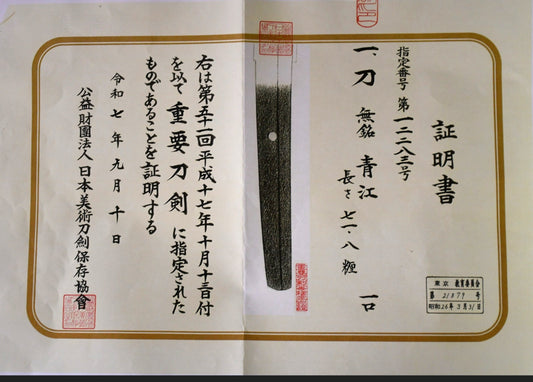 証明書
指定番号 第一二二八三号
一、刀 無銘 青江 一口
長さ 七一・八 糎
右は第五十一回平成十七年十月十三日付
を以て 重要刀剣 に指定された
ものであることを証明する
令和七年九月十日
公益財團法人 日本美術刀剣保存協會
東京 教育委員会
第 21879 号
昭和26年3月31日